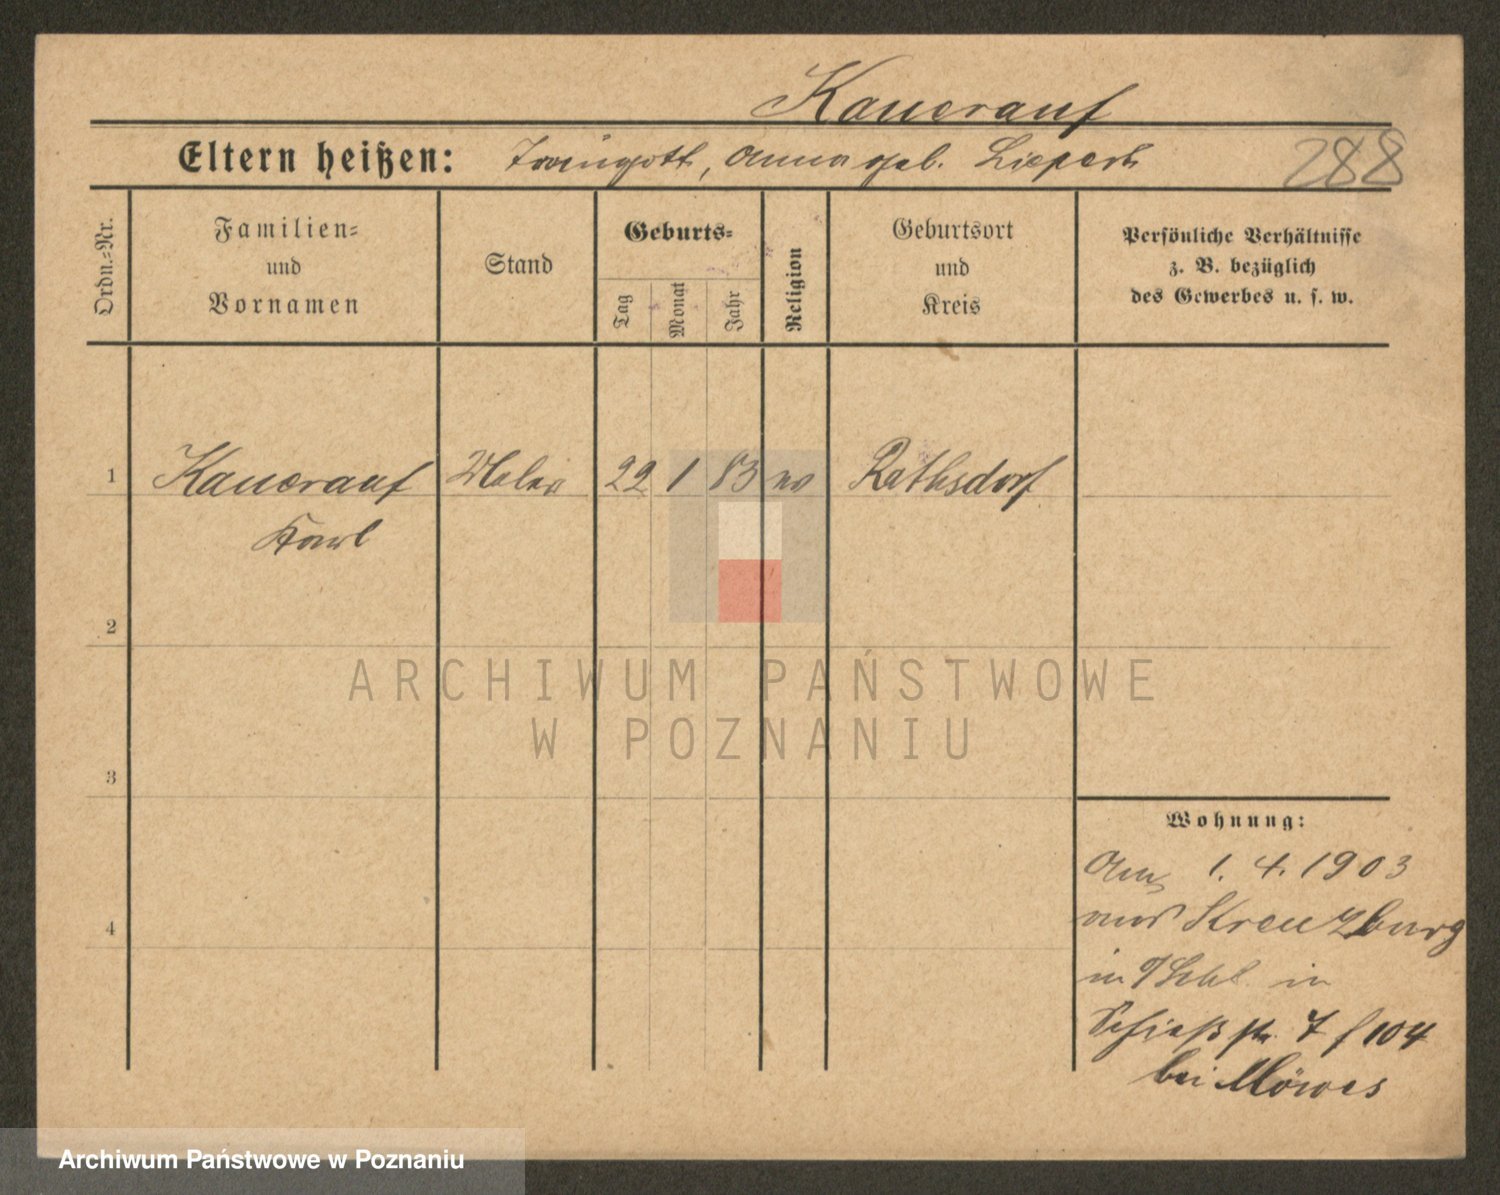 Kauerauf
Eltern heißen: Traugott, Anna geb. Liepert
288
Ordn.-Nr.
Familien-
und
Vornamen
Stand
Geburts-
Tag
Monat
Jahr
Religion
Geburtsort
und
Kreis
Persönliche Verhältnisse
z. B. bezüglich
des Gewerbes u. s. w.
1 Kauerauf Maler 22 1 83 ev Rathsdorf
Karl
2
3
4
ARCHIWUM PAŃSTWOWE
W POZNANIU
Wohnung:
Am 1. 4. 1903
aus Kreuzburg
in in
Schießstr. 7 f 104
bei Möwes
Archiwum Państwowe w Poznaniu